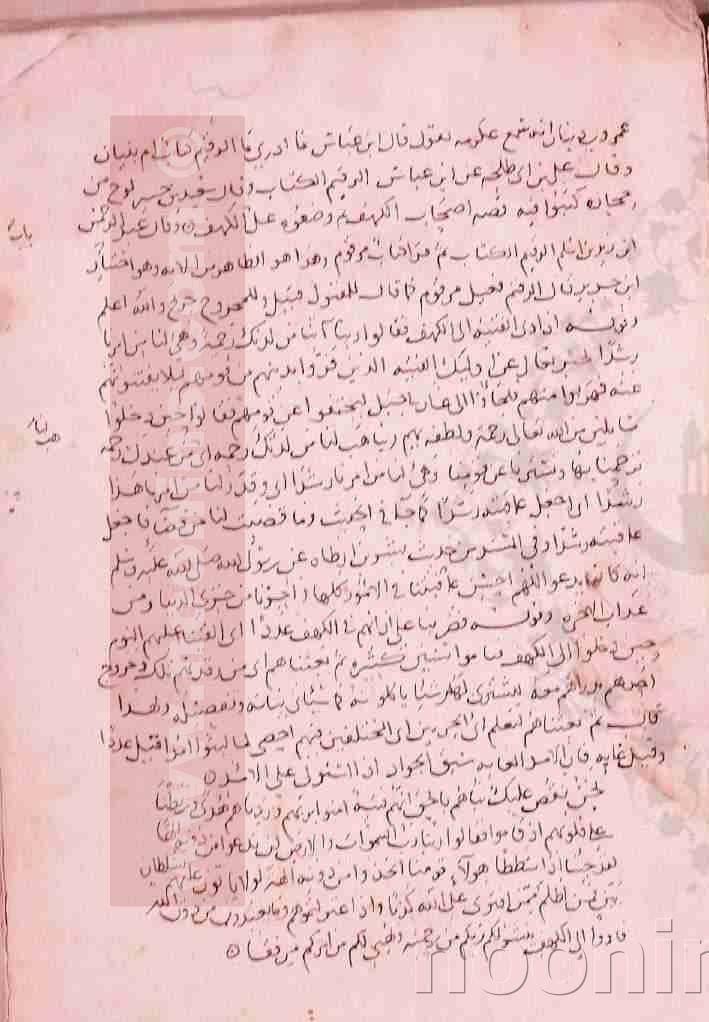 عمرو بن دينار انه سمع عكرمه يقول قال ابن عباس ما ادري ما الرقيم كتاب ام بنيان
وقال علي بن ابي طلحه عن ابن عباس الرقيم الكتاب وقال سعيد بن جبير لوح من
حجاره كتبوا فيه قصه اصحاب الكهف ثم وضعوه على الكهف وقال عبد الرحمن
ابن زيد بن اسلم الرقيم الكتاب ثم قرا كتاب مرقوم وهذا هو الظاهر من الايه وهو اختيار
ابن جرير قال الرقيم فعيل مرقوم كما قال للمقتول قتيل وللمجروح جريح والله اعلم
وقوله اذ اوى الفتية الى الكهف فقالوا ربنا آتنا من لدنك رحمة وهيئ لنا من امرنا
رشدا يخبر تعالى عن اوليك الفتيه الذين فروا بدينهم من قومهم ليلا يفتنوهم
عنه فهربوا منهم فلجاوا الى غار في جبل ليختفوا عن قومهم فقالوا حين دخلوا
سايلين من الله تعالى رحمته ولطفه بهم ربنا هب لنا من لدنك رحمه اي من عندك رحمه
ترحمنا بها وتسترنا عن قومنا وهيئ لنا من امرنا رشدا اي وقدر لنا من امرنا هذا
رشدا اي اجعل عاقبته رشدا كما جا في الحديث وما قضيت لنا من قضا فاجعل
عاقبته رشدا وفي المسند من حديث بسر بن ارطاه عن رسول الله صلى الله عليه وسلم
انه كان يدعو اللهم احسن عاقبتنا في الامور كلها واجرنا من خزي الدنيا ومن
عذاب الاخره وقوله فضربنا على اذانهم في الكهف عددا اي القينا عليهم النوم
حين دخلوا الى الكهف فناموا سنين كثيره ثم بعثناهم اي من رقدتهم تلك وخروج
احدهم بدراهم معه ليشتري لهم شيا ياكلونه كما سياتي بيانه وتفصيله ولهذا
قال ثم بعثناهم لنعلم اي الحزبين اي المختلفين فيهم احصى لما لبثوا امدا فقيل عددا
وقيل غايه فان الامد الغايه سبق الجواد اذا استولى على الامد
نحن نقص عليك نباهم بالحق انهم فتية امنوا بربهم وزدناهم هدى وربطنا
على قلوبهم اذ قاموا فقالوا ربنا رب السموات والارض لن ندعو من دونه الها
لقد قلنا اذا شططا هولاء قومنا اتخذوا من دونه الهة لولا ياتون عليهم بسلطان
بين فمن اظلم ممن افترى على الله كذبا واذ اعتزلتموهم وما يعبدون من دون الله
فاووا الى الكهف ينشر لكم ربكم من رحمته ويهيئ لكم من امركم مرفقا
هب لنا
noonin